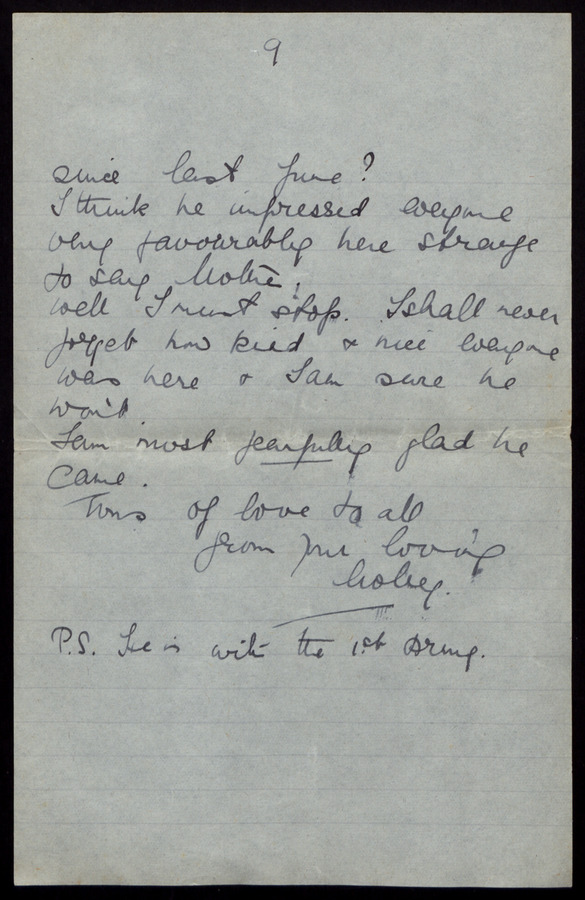 9
since last June?
I think he impressed everyone
very favourably here strange
to say
well I must stop. I shall never
forget how kind & nice everyone
was here & I am sure he
won't
I am most fearfully glad he
came.
Tons of love to all
from your loving
P.S. He is with the 1st Army.